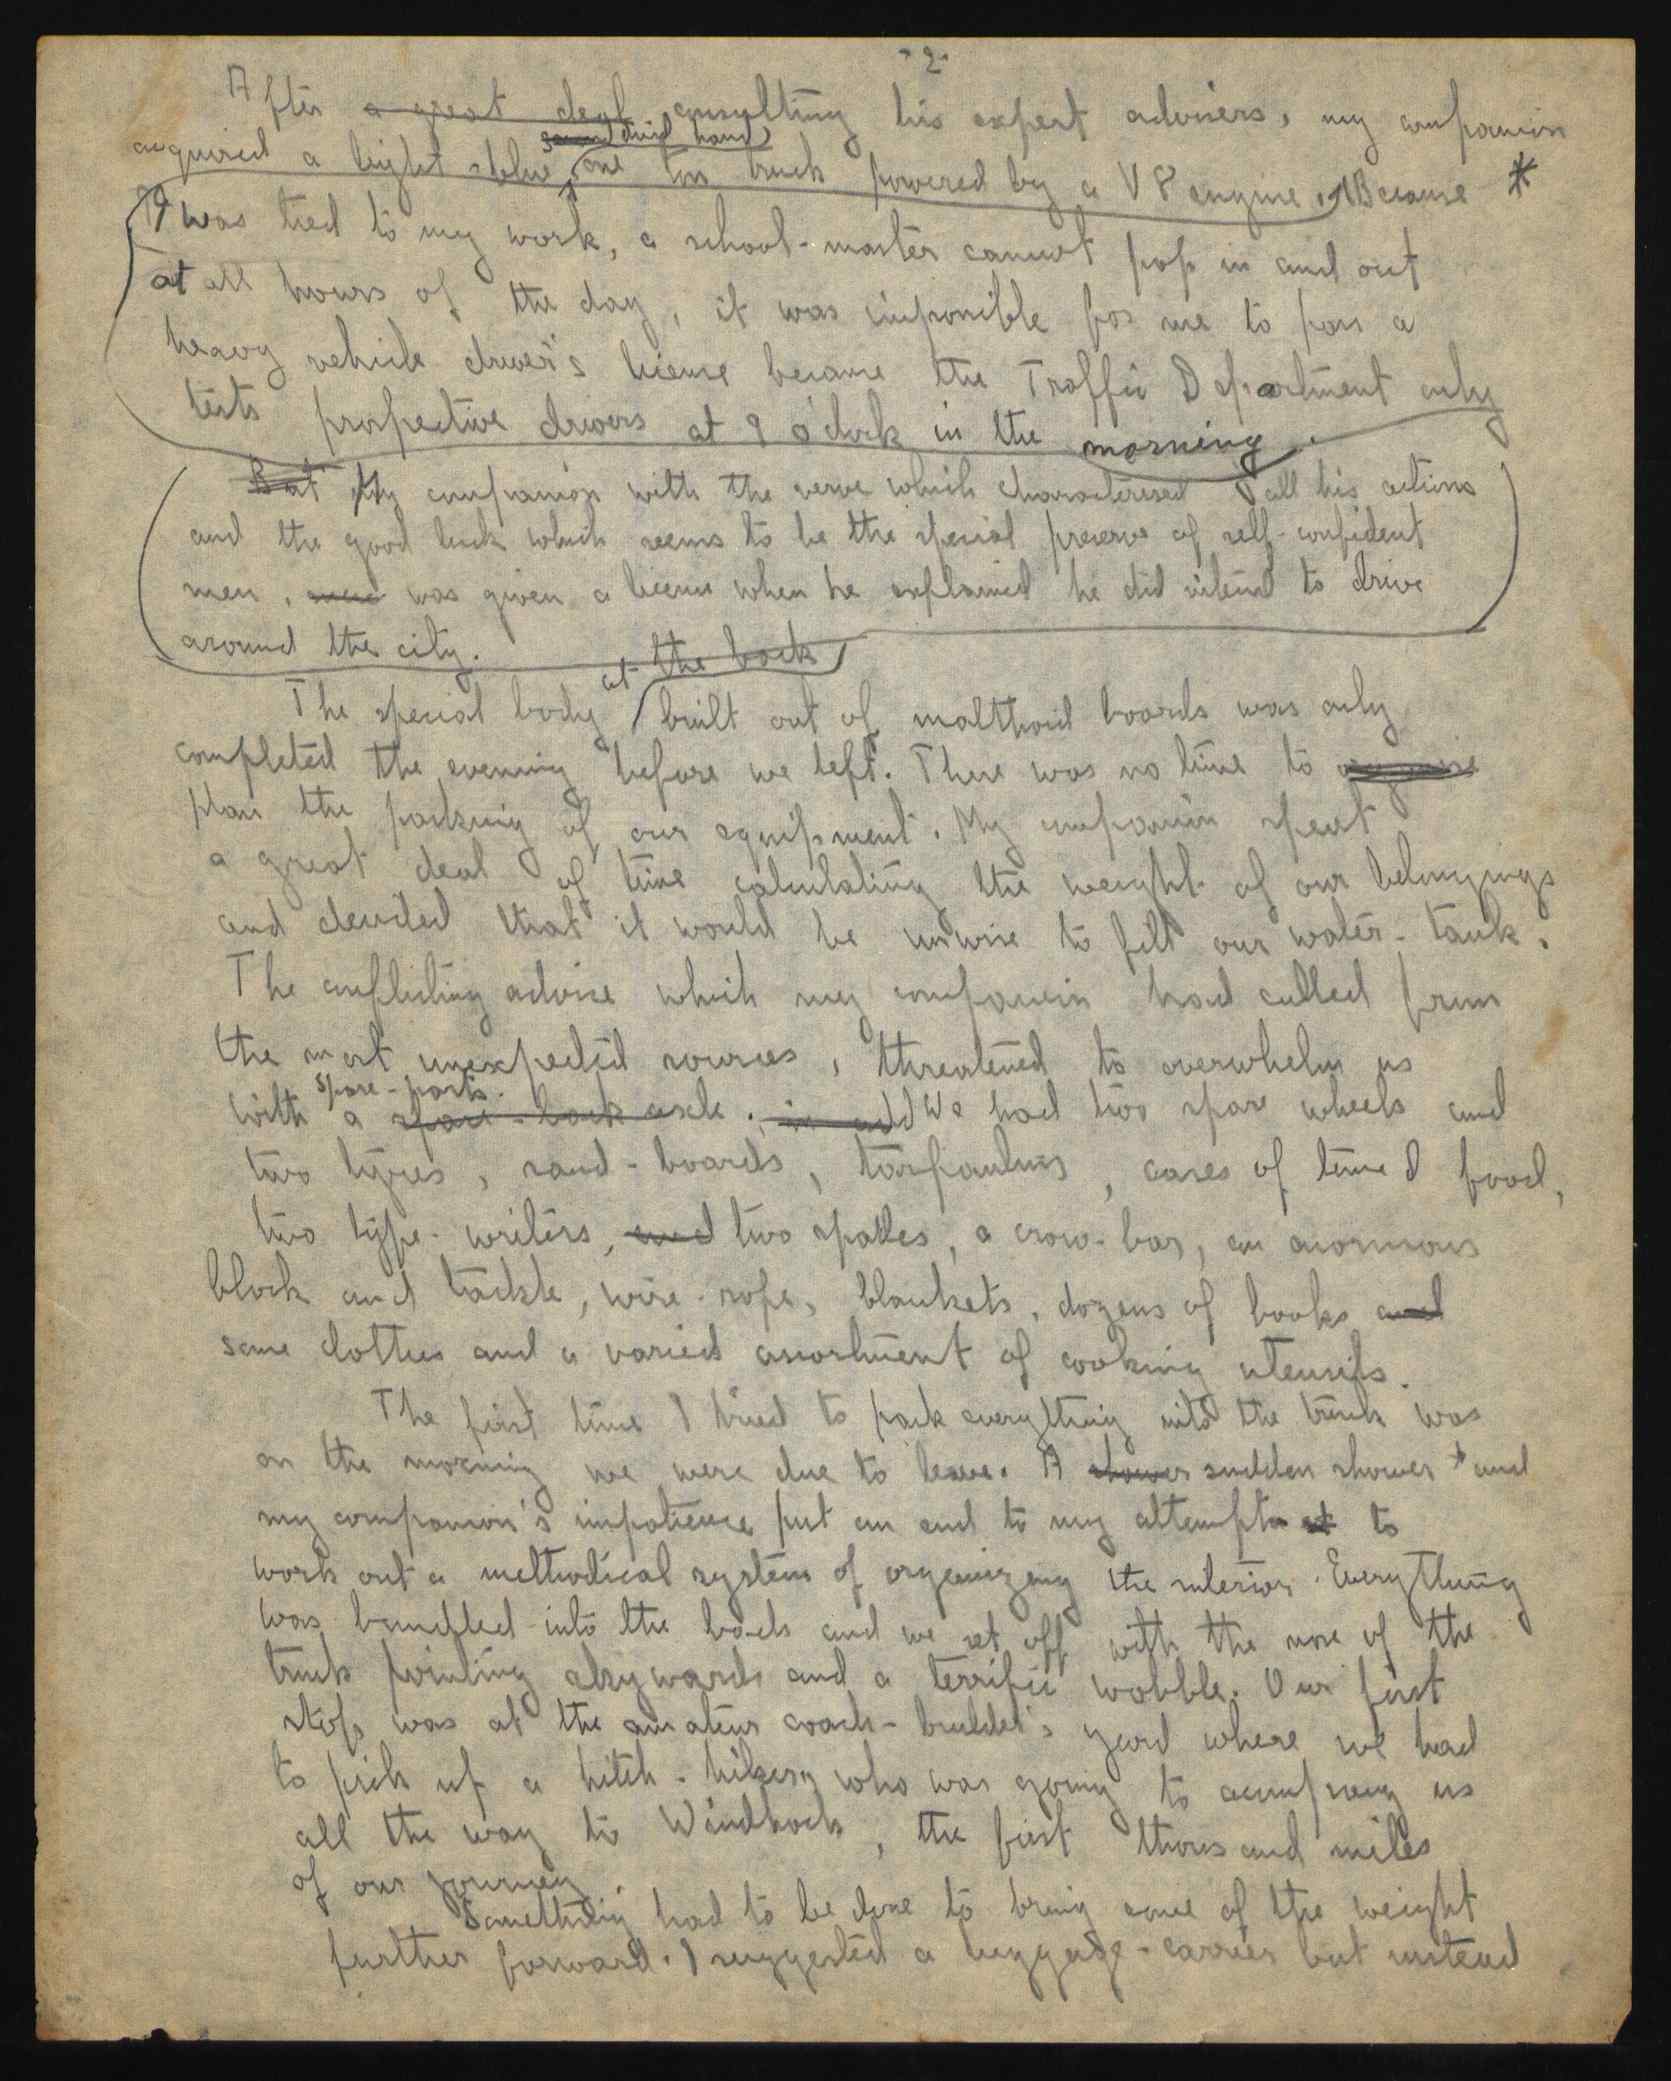 - 2 -
After a great deal consulting his expert advisers, my companion
second third hand
acquired a light blue, one ton truck powered by a V8 engine. Because *
I was tied to my work, a school-master cannot pop in and out
at all hours of the day, it was impossible for me to pass a
heavy vehicle driver's license because the Traffic Department only
tests prospective drivers at 9 o'clock in the morning.
But My companion with the verve which characterised all his actions
and the good luck which seems to be the special preserve of self-confident
men, was given a license when he explained he did intend to drive
around the city.
at the back
The special body built out of malthoid boards was only
completed the evening before we left. There was no time to organise
plan the packing of our equipment. My companion spent
a great deal of time calculating the weight of our belongings
and decided that it would be unwise to fill our water-tank.
The conflicting advise which my companion had culled from
the most unexpected sources, threatened to overwhelm us
spare-parts.
with a spare-back axle. in add We had two spare wheels and
two tyres, sand-boards, tarpaulins, cases of tined food,
two type-writers, and two spades, a crow-bar, an enormous
block and tackle, wire-rope, blankets, dozens of books and
some clothes and a varied assortment of cooking utensils.
The first time I tried to pack everything into the truck was
on the morning we were due to leave. A shower sudden shower and
my companion's impatience put an end to my attempts at to
work out a methodical system of organizing the interior. Everything
was bundled into the back and we set off with the nose of the
truck pointing skywards and a terrific wobble. Our first
stop was at the amateur coach-builder's yard where we had
to pick up a hitch-hiker who was going to accompany us
all the way to Windhoek, the first thousand miles
of our journey.
Something had to be done to bring some of the weight
further forward. I suggested a luggage-carrier but instead